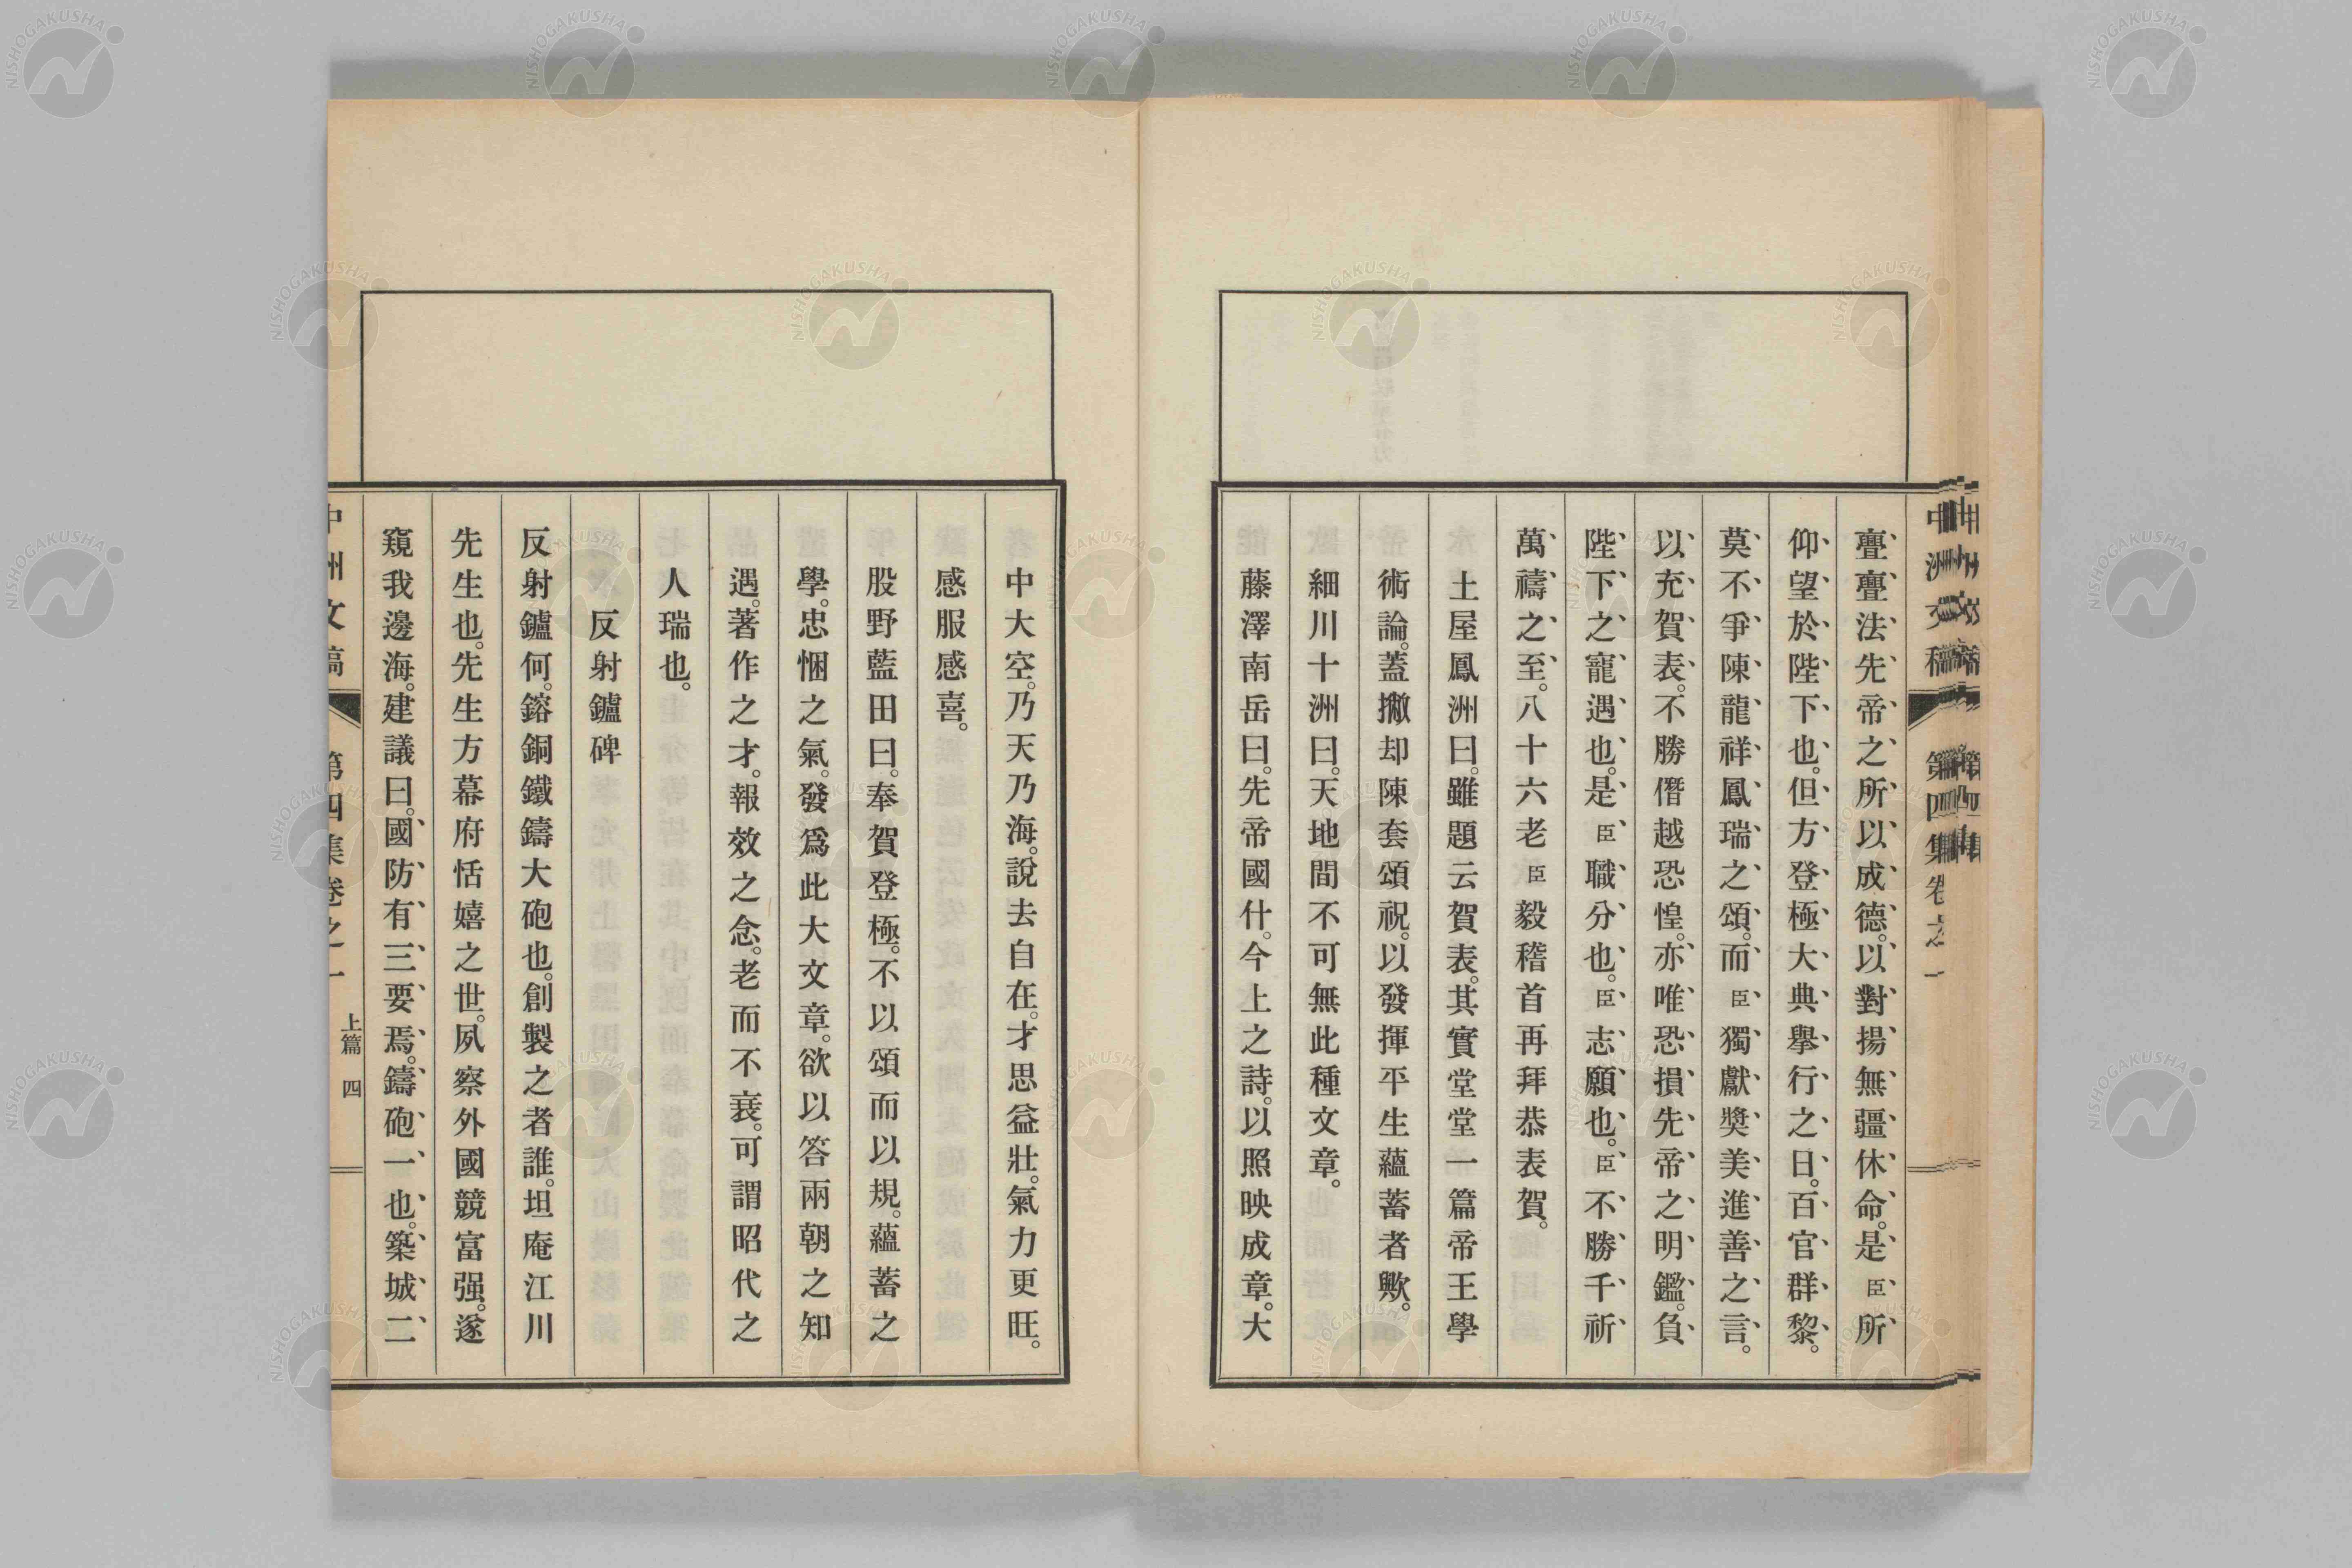 亹亹法先帝之所以成德。以對揚無疆休命。是臣所
仰望於陛下也。但方登極大典擧行之日。百官群黎。
莫不爭陳龍祥鳳瑞之頌。而臣獨獻奬美進善之言。
以充賀表。不勝僭越恐惶。亦唯恐損先帝之明鑑。負
陛下之寵遇也。是臣職分也。臣志願也。臣不勝千祈
萬禱之至。八十六老臣毅稽首再拜恭表賀。
土屋鳳洲曰。雖題云賀表。其實堂堂一篇帝王學
術論。蓋撇却陳套頌祝。以發揮平生蘊蓄者歟。
細川十洲曰。天地間不可無此種文章。
藤澤南岳曰。先帝國什。今上之詩。以照映成章。大
中大空。乃天乃海。說去自在。才思益壯。氣力更旺。
感服感喜。
股野藍田曰。奉賀登極。不以頌而以規。蘊蓄之
學。忠悃之氣。發爲此大文章。欲以答兩朝之知
遇。著作之才。報效之念。老而不衰。可謂昭代之
人瑞也。
反射鑪碑
反射鑪何。鎔銅鐵鑄大砲也。創製之者誰。坦庵江川
先生也。先生方幕府恬嬉之世。夙察外國競富强。遂
窺我邊海。建議曰。國防有三要焉。鑄砲一也。築城二
中洲文稿 第四集卷之一 上篇 四
NISHOGAKUSHA